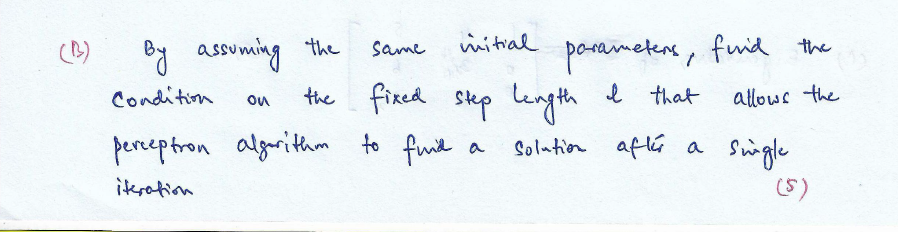 (B) By assuming the same initial parameters, find the
condition on the fixed step length l that allows the
perceptron algorithm to find a solution after a single
iteration (5)